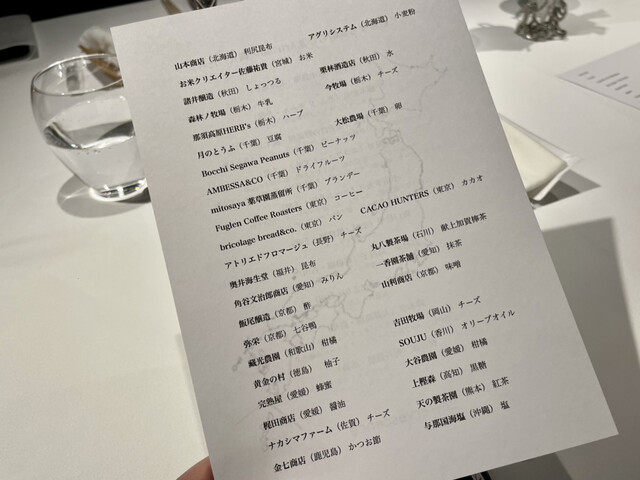 山本商店（北海道）利尻昆布　アグリシステム（北海道）小麦粉
お米クリエイター佐藤祐貴（宮城）お米
諸井醸造（秋田）しょっつる　栗林酒造店（秋田）水
森林ノ牧場（栃木）牛乳　今牧場（栃木）チーズ
那須高原HERB's（栃木）ハーブ
月のとうふ（千葉）豆腐　大松農場（千葉）卵
Bocchi Segawa Peanuts（千葉）ピーナッツ
AMBESSA&CO（千葉）ドライフルーツ
mitosaya 薬草園蒸留所（千葉）ブランデー
Fuglen Coffee Roasters（東京）コーヒー
bricolage bread&co.（東京）パン　CACAO HUNTERS（東京）カカオ
アトリエドフロマージュ（長野）チーズ
奥井海生堂（福井）昆布　丸八製茶場（石川）献上加賀棒茶
角谷文治郎商店（愛知）みりん　一香園茶舗（愛知）抹茶
飯尾醸造（京都）酢　山利商店（京都）味噌
弥栄（京都）七谷鴨
蔵光農園（和歌山）柑橘　吉田牧場（岡山）チーズ
黄金の村（徳島）柚子　SOUJU（香川）オリーブオイル
完熟屋（愛媛）蜂蜜　大谷農園（愛媛）柑橘
梶田商店（愛媛）醤油　上樫森（高知）黒糖
ナカシマファーム（佐賀）チーズ　天の製茶園（熊本）紅茶
金七商店（鹿児島）かつお節　与那国海塩（沖縄）塩